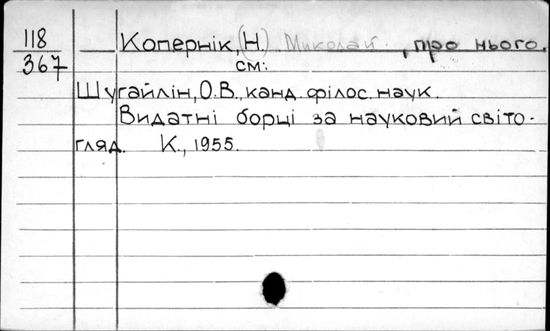 118 Копернік, Н. (Миколай), про нього.
367 см:
Шугайлін, О.В., канд. філос. наук.
Видатні борці за науковий світо-
гляд. К., 1955.